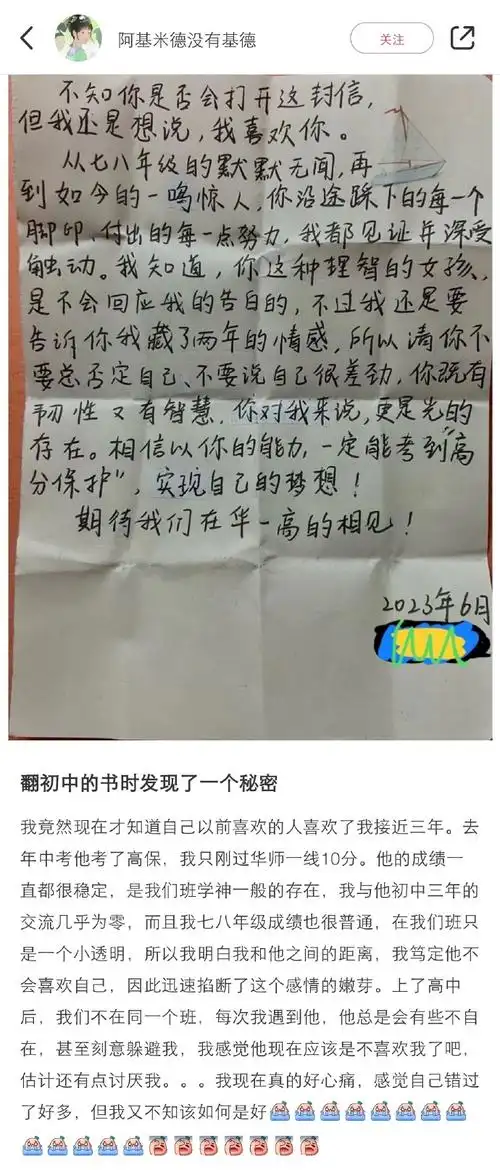 阿基米德没有基德
关注
不知你是否会打开这封信，
但我还是想说，我喜欢你。
从七八年级的默默无闻，再
到如今的一鸣惊人，你沿途踩下的每一个
脚印、付出的每一点努力，我都见证并深受
触动。我知道，你这种理智的女孩，
是不会回应我的告白的，不过我还是要
告诉你我藏了两年的情感，所以请你不
要总否定自己、不要说自己很差劲，你既有
韧性又有智慧，你对我来说，更是光的
存在。相信以你的能力，一定能考到“高
分保护”，实现自己的梦想！
期待我们在华一高的相见！
2023年6月
翻初中的书时发现了一个秘密
我竟然现在才知道自己以前喜欢的人喜欢了我接近三年。去
年中考他考了高保，我只刚过华师一线10分。他的成绩一
直都很稳定，是我们班学神一般的存在，我与他初中三年的
交流几乎为零，而且我七八年级成绩也很普通，在我们班只
是一个小透明，所以我明白我和他之间的距离，我笃定他不
会喜欢自己，因此迅速掐断了这个感情的嫩芽。上了高中
后，我们不在同一个班，每次我遇到他，他总是会有些不自
在，甚至刻意躲避我，我感觉他现在应该是不喜欢我了吧，
估计还有点讨厌我。。。我现在真的好心痛，感觉自己错过
了好多，但我又不知该如何是好